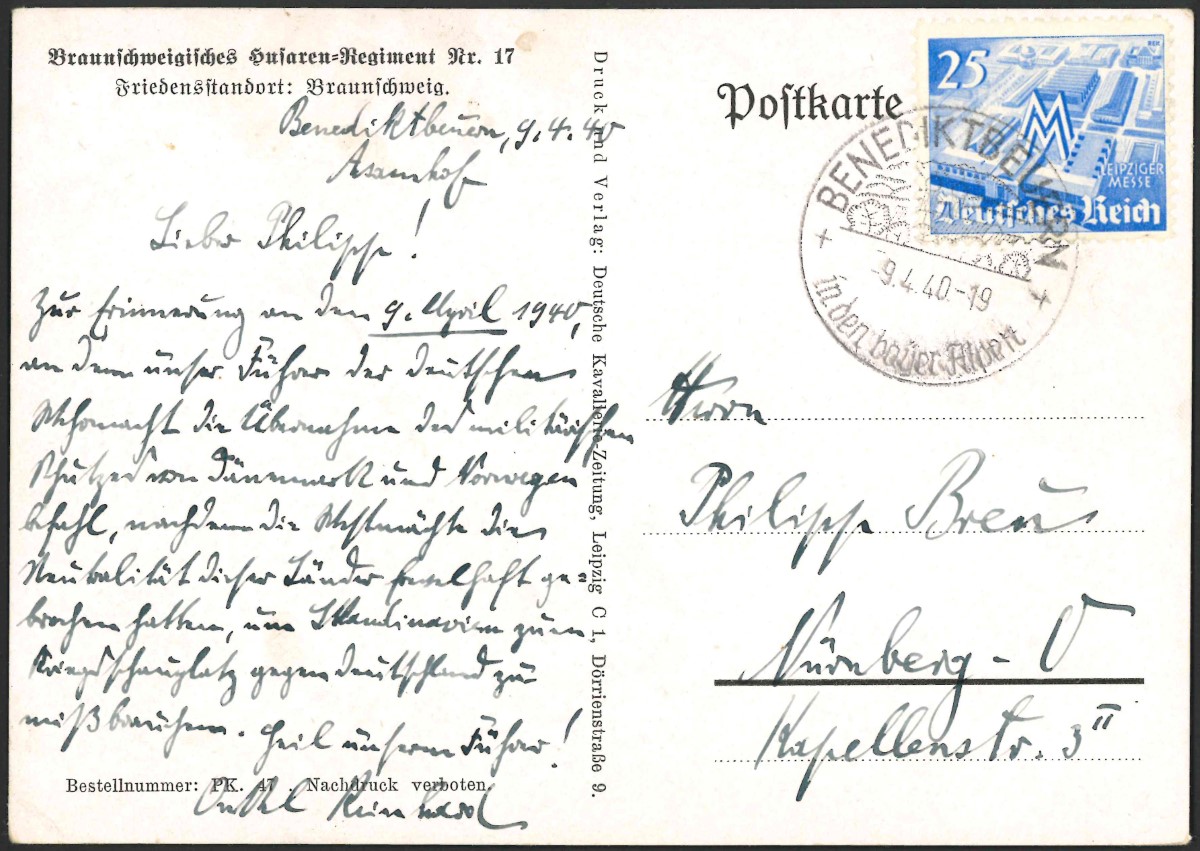 Braunschweigisches Husaren-Regiment Nr. 17
Friedensstandort: Braunschweig.
Benediktbeuern, 9.4.40
Lieber Philipp!
Zur Erinnerung an den 9. April 1940,
an dem unser Führer der deutschen
Wehrmacht die Übernahme des militärischen
Schutzes von Dänemark und Norwegen
befahl, nachdem die Westmächte die
Neutralität dieser Länder frevelhaft ge-
brochen hatten, um Skandinavien zum
Kriegsschauplatz gegen Deutschland zu
mißbrauchen. Heil unserm Führer!
Onkel Reinhard
Bestellnummer: PK. 47 . Nachdruck verboten.
Druck und Verlag: Deutsche Kavallerie-Zeitung, Leipzig C 1, Dörrienstraße 9.
Postkarte
25
MM
LEIPZIGER
MESSE
Deutsches Reich
BENEDIKTBEUERN
-9.4.40.-19
in den bayer. Alpen
Herrn
Philipp Breus
Nürnberg - O
Kapellenstr. 3 II